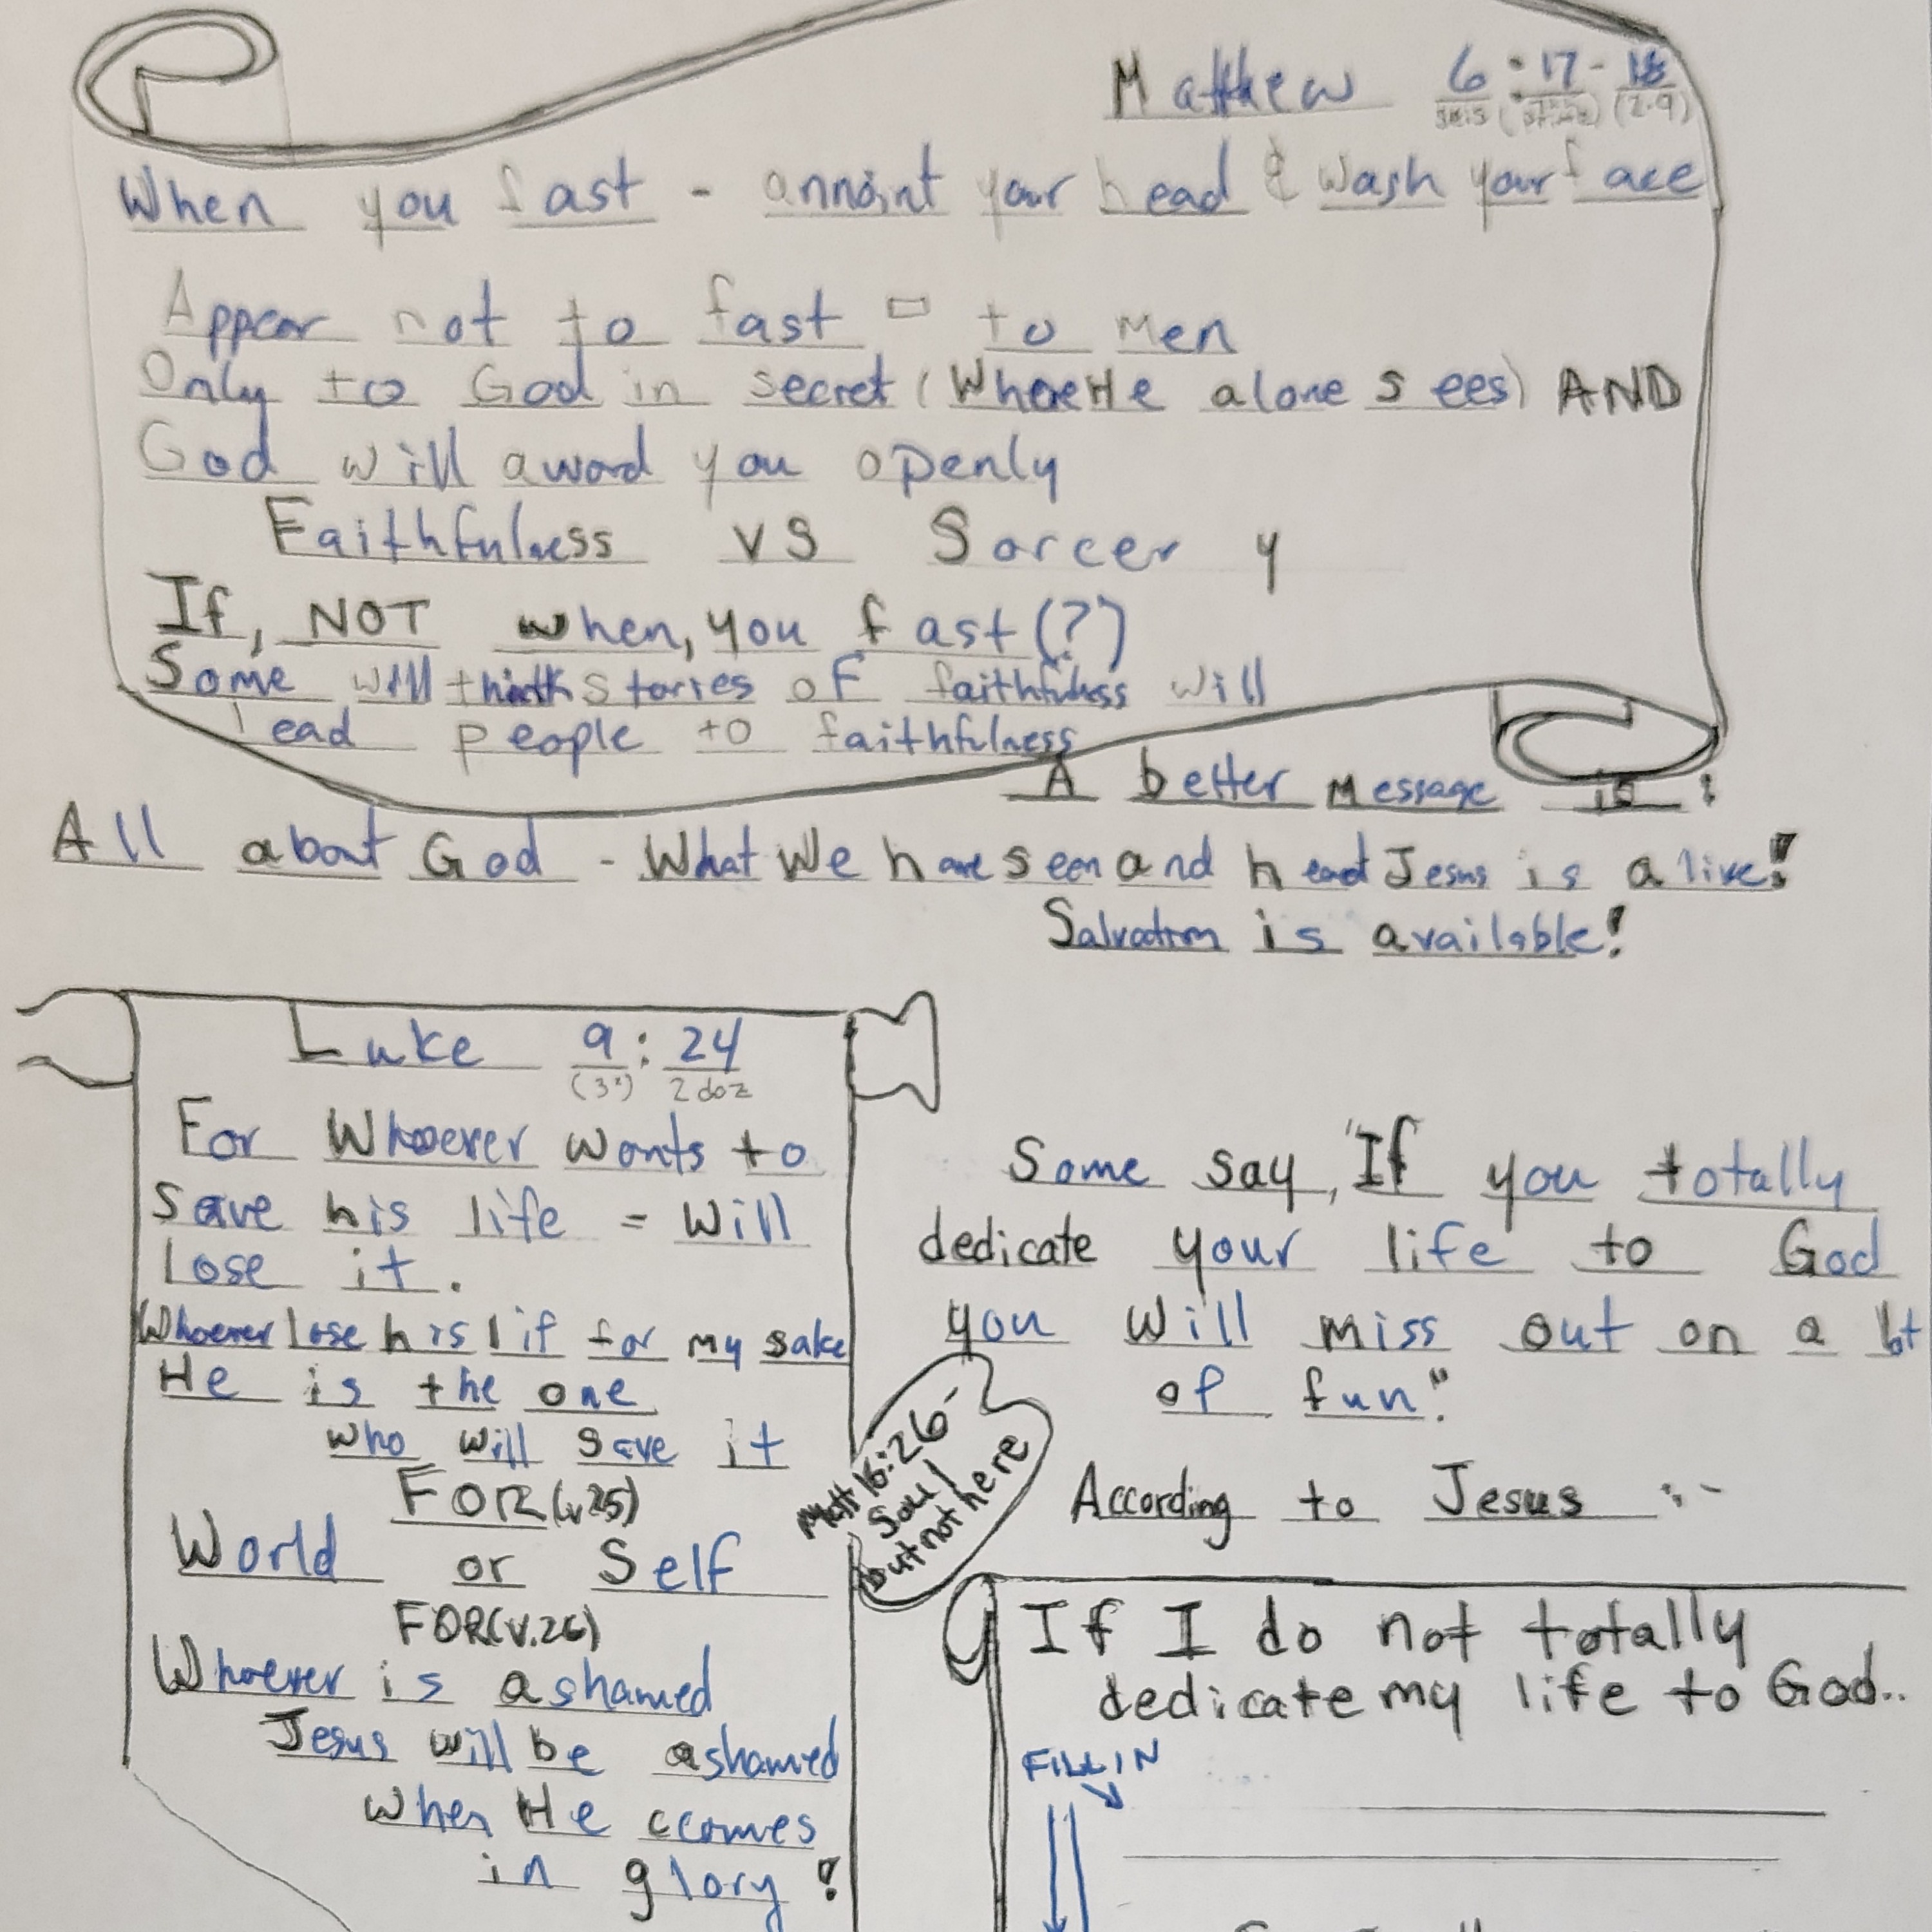 Matthew 6:17-18
seis (2·9)
When you fast - annoint your head & wash your face
Appear not to fast - to Men
Only to God in secret (Where He alone sees) AND
God will award you openly
Faithfulness vs Sorcery
If, NOT when, you fast(?)
Some will think stories of faithfulness will
lead people to faithfulness
A better Message is :
All about God - What We have seen and heard Jesus is alive!
Salvation is available!
Luke 9:24
(3²) 2 doz
For Whoever wants to
save his life = Will
lose it.
Whoever lose his lif for my sake
He is the one
who will save it
FOR (v25)
World or Self
FOR(V.26)
Whoever is ashamed
Jesus will be ashamed
when He ccomes
in glory!
Matt 16:26-
Soul
but not here
Some say, "If you totally
dedicate your life to God
you will miss out on a lot
of fun."
According to Jesus :-
If I do not totally
dedicate my life to God..
FILL IN